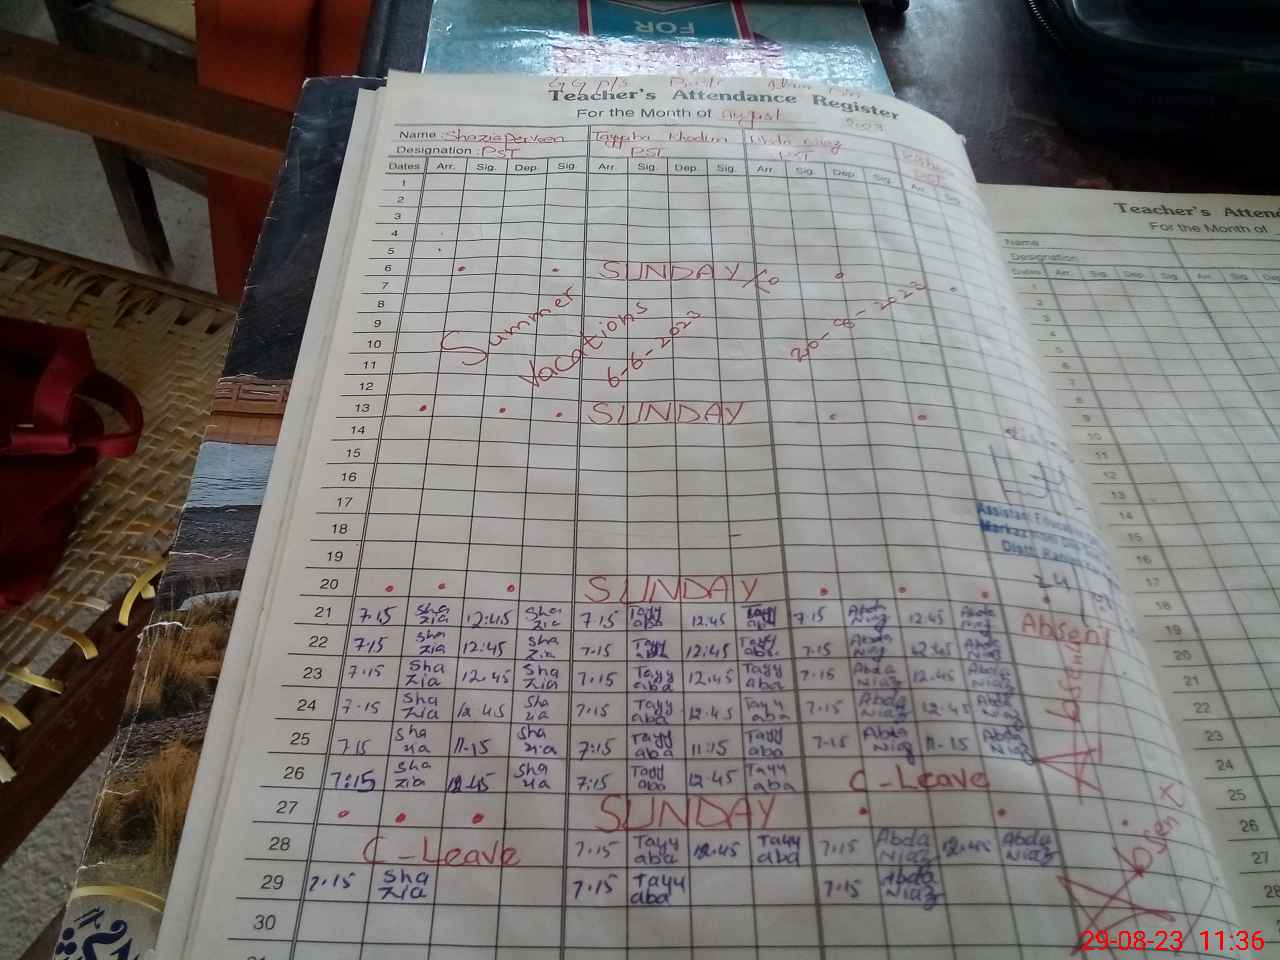 FOR
Teacher's Attendance Register
For the Month of August 2023
Name : Shazia Perveen Tayyaba Khadim Abda Niaz
Designation : PST PST PST PST
Dates Arr. Sig. Dep. Sig. Arr. Sig. Dep. Sig. Arr. Sig. Dep. Sig. Arr. Sig.
1
2
3
4
5
6 SUNDAY
7 to
8 Summer Vacations 6-6-2023 20-8-2023
9
10
11
12
13 SUNDAY
14
15
16
17
18
19
20 SUNDAY
21 7.15 Sha zia 12:45 Sha zia 7.15 Tayy aba 12.45 Tayy aba 7.15 Abda Niaz 12.45 Abda Niaz Absent
22 7:15 Sha zia 12:45 Sha zia 7.15 Tayy aba 12:45 Tayy aba 7.15 Abda Niaz 12.45 Abda Niaz
23 7.15 Sha zia 12.45 Sha zia 7.15 Tayy aba 12.45 Tayy aba 7.15 Abda Niaz 12.45 Abda Niaz
24 7.15 Sha zia 12.45 Sha zia 7.15 Tayy aba 12.45 Tayy aba 7.15 Abda Niaz 12.45 Abda Niaz Absent
25 7.15 Sha zia 11-15 Sha zia 7:15 Tayy aba 11:15 Tayy aba 7.15 Abda Niaz 11-15 Abda Niaz
26 7:15 Sha zia 12.45 Sha zia 7:15 Tayy aba 12.45 Tayy aba C-Leave
27 SUNDAY
28 C-Leave 7.15 Tayy aba 12.45 Tayy aba 7.15 Abda Niaz 12.45 Abda Niaz Absent
29 7.15 Sha zia 7.15 Tayy aba 7.15 Abda Niaz
30
Assistant Education
Markaz
Distt:
24
Teacher's Attend
For the Month of
Name
Designation
Dates Arr. Sig. Dep. Sig. Arr. Sig. Dep.
1
2
3
4
5
6
7
8
9
10
11
12
13
14
15
16
17
18
19
20
21
22
23
24
25
26
27
28
29-08-23 11:36